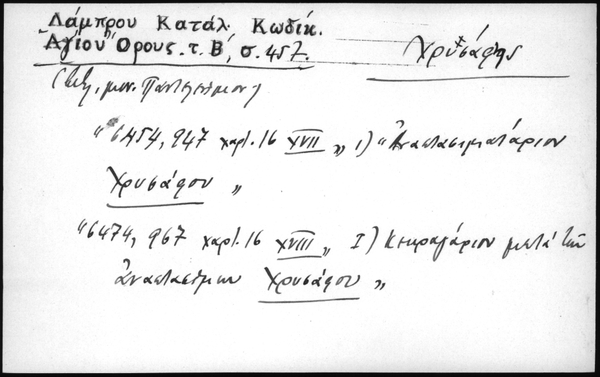 Λάμπρου Κατάλ. Κωδίκ.
Ἁγίου Ὄρους. τ. Β', σ. 457.
Χρυσάφης
(Βιβ. μον. Παντελεήμονος)
"6454, 947 χαρτ. 16 XVII „ 1) "Ἀναστασιματάριον
Χρυσάφου „
"6474, 967 χαρτ. 16 XVIII „ I) Κεκραγάριον μετὰ τῶν
ἀναστασίμων Χρυσάφου „